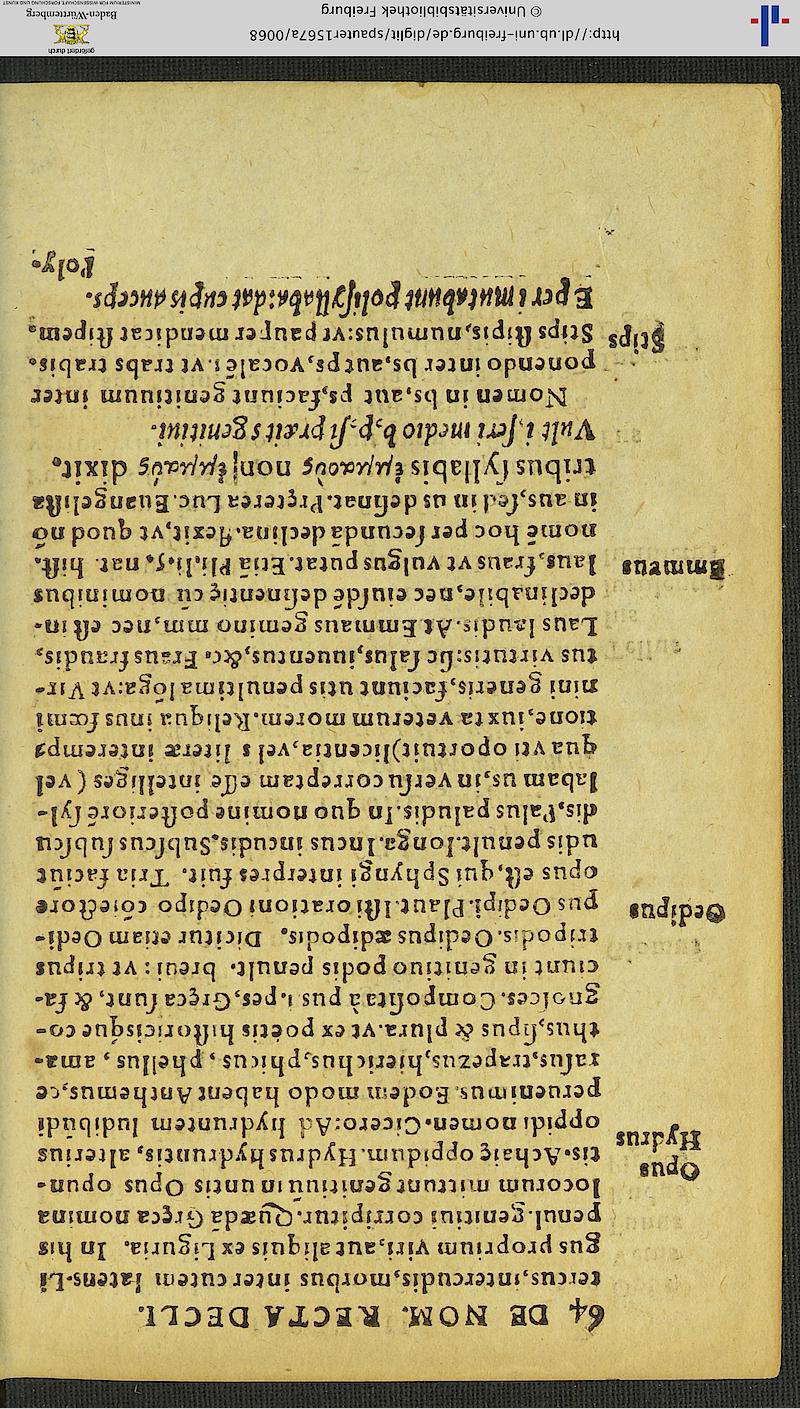 http://dl.ub.uni-freiburg.de/diglit/spauter1567a/0068
© Universitätsbibliothek Freiburg
gefördert durch
Baden-Württemberg
MINISTERIUM FÜR WISSENSCHAFT, FORSCHUNG UND KUNST
64 DE NOM. RECTA DECLI.
tercus,intercutis,morbus inter cutem latens.Li
gus proprium viri,aut aliquis ex Liguria. In his
penul.genitiui corripitur.Quædā Gręca nomina
locorum mittunt genitiuū in untis Opus opun-
tis.Achaię oppidum.Hydrus hydruntis, alterius
oppidi nomen.Cicero:Ad hydruntem ludibūdi
peruenimus.Eodem modo habent Amathus,ce
rasus,trapezus,hiericus,phicus, phellus, ama-
thus,sipus & plura.vt ex poetis historicisque co-
gnosces.Composita ą pus i.pes,Gręca sunt, & fa-
ciunt in genitiuo podis penult. breui: vt tripus
tripodis.Oedipus œdipodis. Dicitur etiam Oedi-
pus Oedipi.Plaut.Isti orationi Oedipo cōiectore
opus est,qui Sphyngi interpres fuit. Tria faciūt
udis penult.longa.Incus incudis.Subscus subscu
dis,Palus paludis.In quo nomine posteriore syl-
labam us,in versu correptam esse intelliges (vel
qua vti oportuit)licentia,vel s literæ interemptę
tione,iuxta veterum morem.Reliqua in us fœmi
nini generis,faciunt utis penultima loga:vt Vir-
tus virtutis:sic salus,iuuentus,&c. Fraus fraudis,
Laus laudis.At Emmaus gemino mm,nec est in-
declinabile,nec eiusdē declinanię cū nominibus
laus,fraus vt vulgus putat.Etiā Pli.li.5. nat. hist.
nome hoc per secundā declina.flexit,vt quod nō
in aus,sed in us desinat.Prętereа Luc.Euangelista
tribus syllabis ἐμμαοὺς non ἐμμαὺς dixit.
Vult i,seri medio q̄ p,si præit s genitiui.
Nomen in bs,aut ps,faciunt genitiuum inter
ponendo inter bs,aut ps,vocalē i.vt trabs trabis,
Stips stipis,nummus:vt pauper mendicat stipem.
E per i mutabunt polisyllaba:dat cup is auceps.
Poly-
Opus
Hydrus
Oedipus
Emmaus
Stips